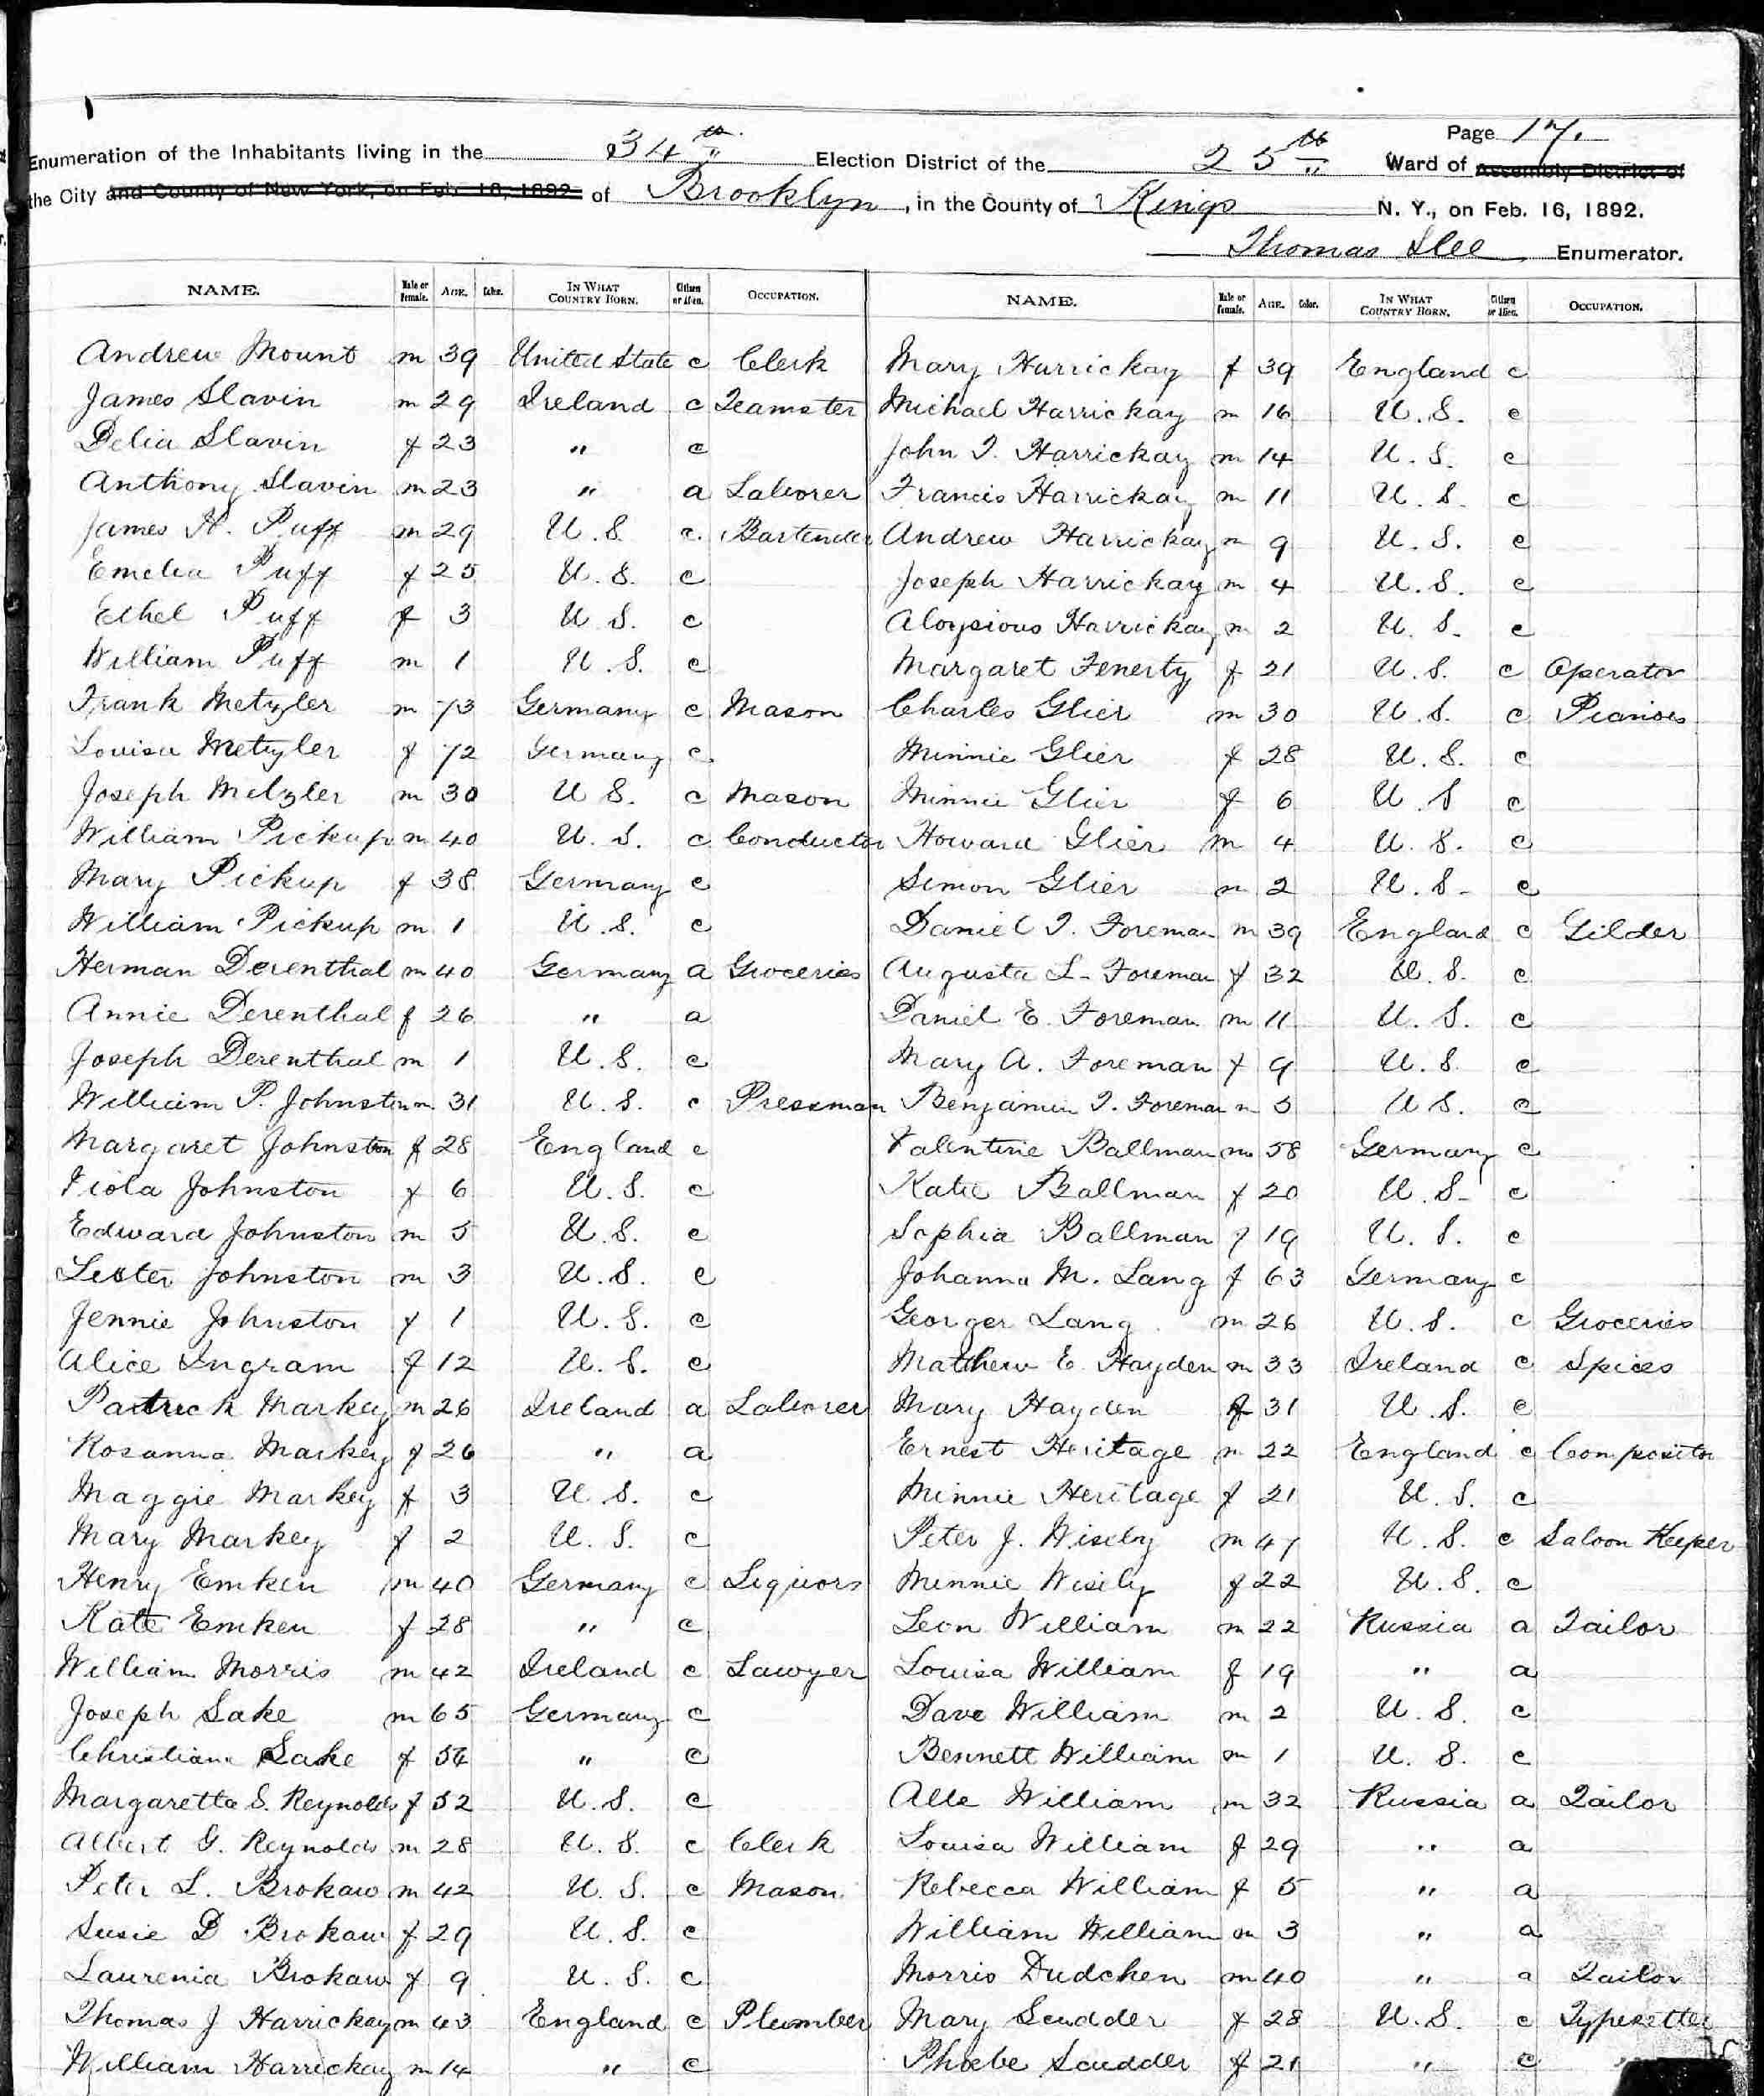 Page 17.
Enumeration of the Inhabitants living in the 34th Election District of the 25th Ward of Assembly District of
the City and County of New York, on Feb. 16, 1892 of Brooklyn, in the County of Kings N. Y., on Feb. 16, 1892.
Thomas Slee Enumerator.
NAME. Male or Female. AGE. Color. IN WHAT COUNTRY BORN. Citizen or Alien. OCCUPATION.
Andrew Mount m 39 United State c Clerk
James Slavin m 29 Ireland c Teamster
Delia Slavin f 23 " c
Anthony Slavin m 23 " a Laborer
James H. Puff m 29 U.S. c. Bartender
Emelia Puff f 25 U.S. c
Ethel Puff f 3 U.S. c
William Puff m 1 U.S. c
Frank Metzler m 73 Germany c Mason
Louisa Metzler f 72 Germany c
Joseph Metzler m 30 U S. c Mason
William Pickup m 40 U.S. c Conductor
Mary Pickup f 38 Germany c
William Pickup m 1 U.S. c
Herman Derenthal m 40 Germany a Groceries
Annie Derenthal f 26 " a
Joseph Derenthal m 1 U.S. c
William P. Johnston m 31 U.S. c Pressman
Margaret Johnston f 28 England c
Viola Johnston f 6 U.S. c
Edward Johnston m 5 U.S. c
Lester Johnston m 3 U.S. c
Jennie Johnston f 1 U.S. c
Alice Ingram f 12 U.S. c
Patrick Markey m 26 Ireland a Laborer
Rosanna Markey f 26 " a
Maggie Markey f 3 U.S. c
Mary Markey f 2 U.S. c
Henry Emken m 40 Germany c Liquors
Kate Emken f 28 " c
William Morris m 42 Ireland c Lawyer
Joseph Sake m 65 Germany c
Christiana Sake f 54 " c
Margaretta S. Reynolds f 52 U.S. c
Albert G. Reynolds m 28 U.S. c Clerk
Peter L. Brokaw m 42 U.S. c Mason
Susie D Brokaw f 29 U.S. c
Laurenia Brokaw f 9 U.S. c
Thomas J Harrickay m 43 England c Plumber
William Harrickay m 14 " c
NAME. Male or Female. AGE. Color. IN WHAT COUNTRY BORN. Citizen or Alien. OCCUPATION.
Mary Harrickay f 39 England c
Michael Harrickay m 16 U.S. c
John T. Harrickay m 14 U.S. c
Francis Harrickay m 11 U.S. c
Andrew Harrickay m 9 U.S. c
Joseph Harrickay m 4 U.S. c
Aloysious Harrickay m 2 U.S. c
Margaret Fenerty f 21 U.S. c Operator
Charles Glier m 30 U.S. c Pianoes
Minnie Glier f 28 U.S. c
Minnie Glier f 6 U.S c
Howard Glier m 4 U.S. c
Simon Glier m 2 U.S. c
Daniel T. Foreman m 39 England c Gilder
Augusta L. Foreman f 32 U.S. c
Daniel E. Foreman m 11 U.S. c
Mary A. Foreman f 9 U.S. c
Benjamin T. Foreman m 3 U S. c
Valentine Ballman m 58 Germany c
Katie Ballman f 20 U.S. c
Sophia Ballman f 19 U.S. c
Johanna M. Lang f 63 Germany c
Georger Lang m 26 U.S. c Groceries
Matthew E. Hayden m 33 Ireland c Spices
Mary Hayden f 31 U.S. c
Ernest Heritage m 22 England c Compositor
Minnie Heritage f 21 U.S. c
Peter J. Wisely m 47 U.S. c Saloon Keeper
Minnie Wisely f 22 U.S. c
Leon William m 22 Russia a Tailor
Louisa William f 19 " a
Dave William m 2 U.S. c
Bennett William m 1 U.S. c
Alle William m 32 Russia a Tailor
Louisa William f 29 " a
Rebecca William f 5 " a
William William m 3 " a
Morris Dudchen m 40 " a Tailor
Mary Scudder f 28 U.S. c Typesetter
Phoebe Scudder f 21 " c "